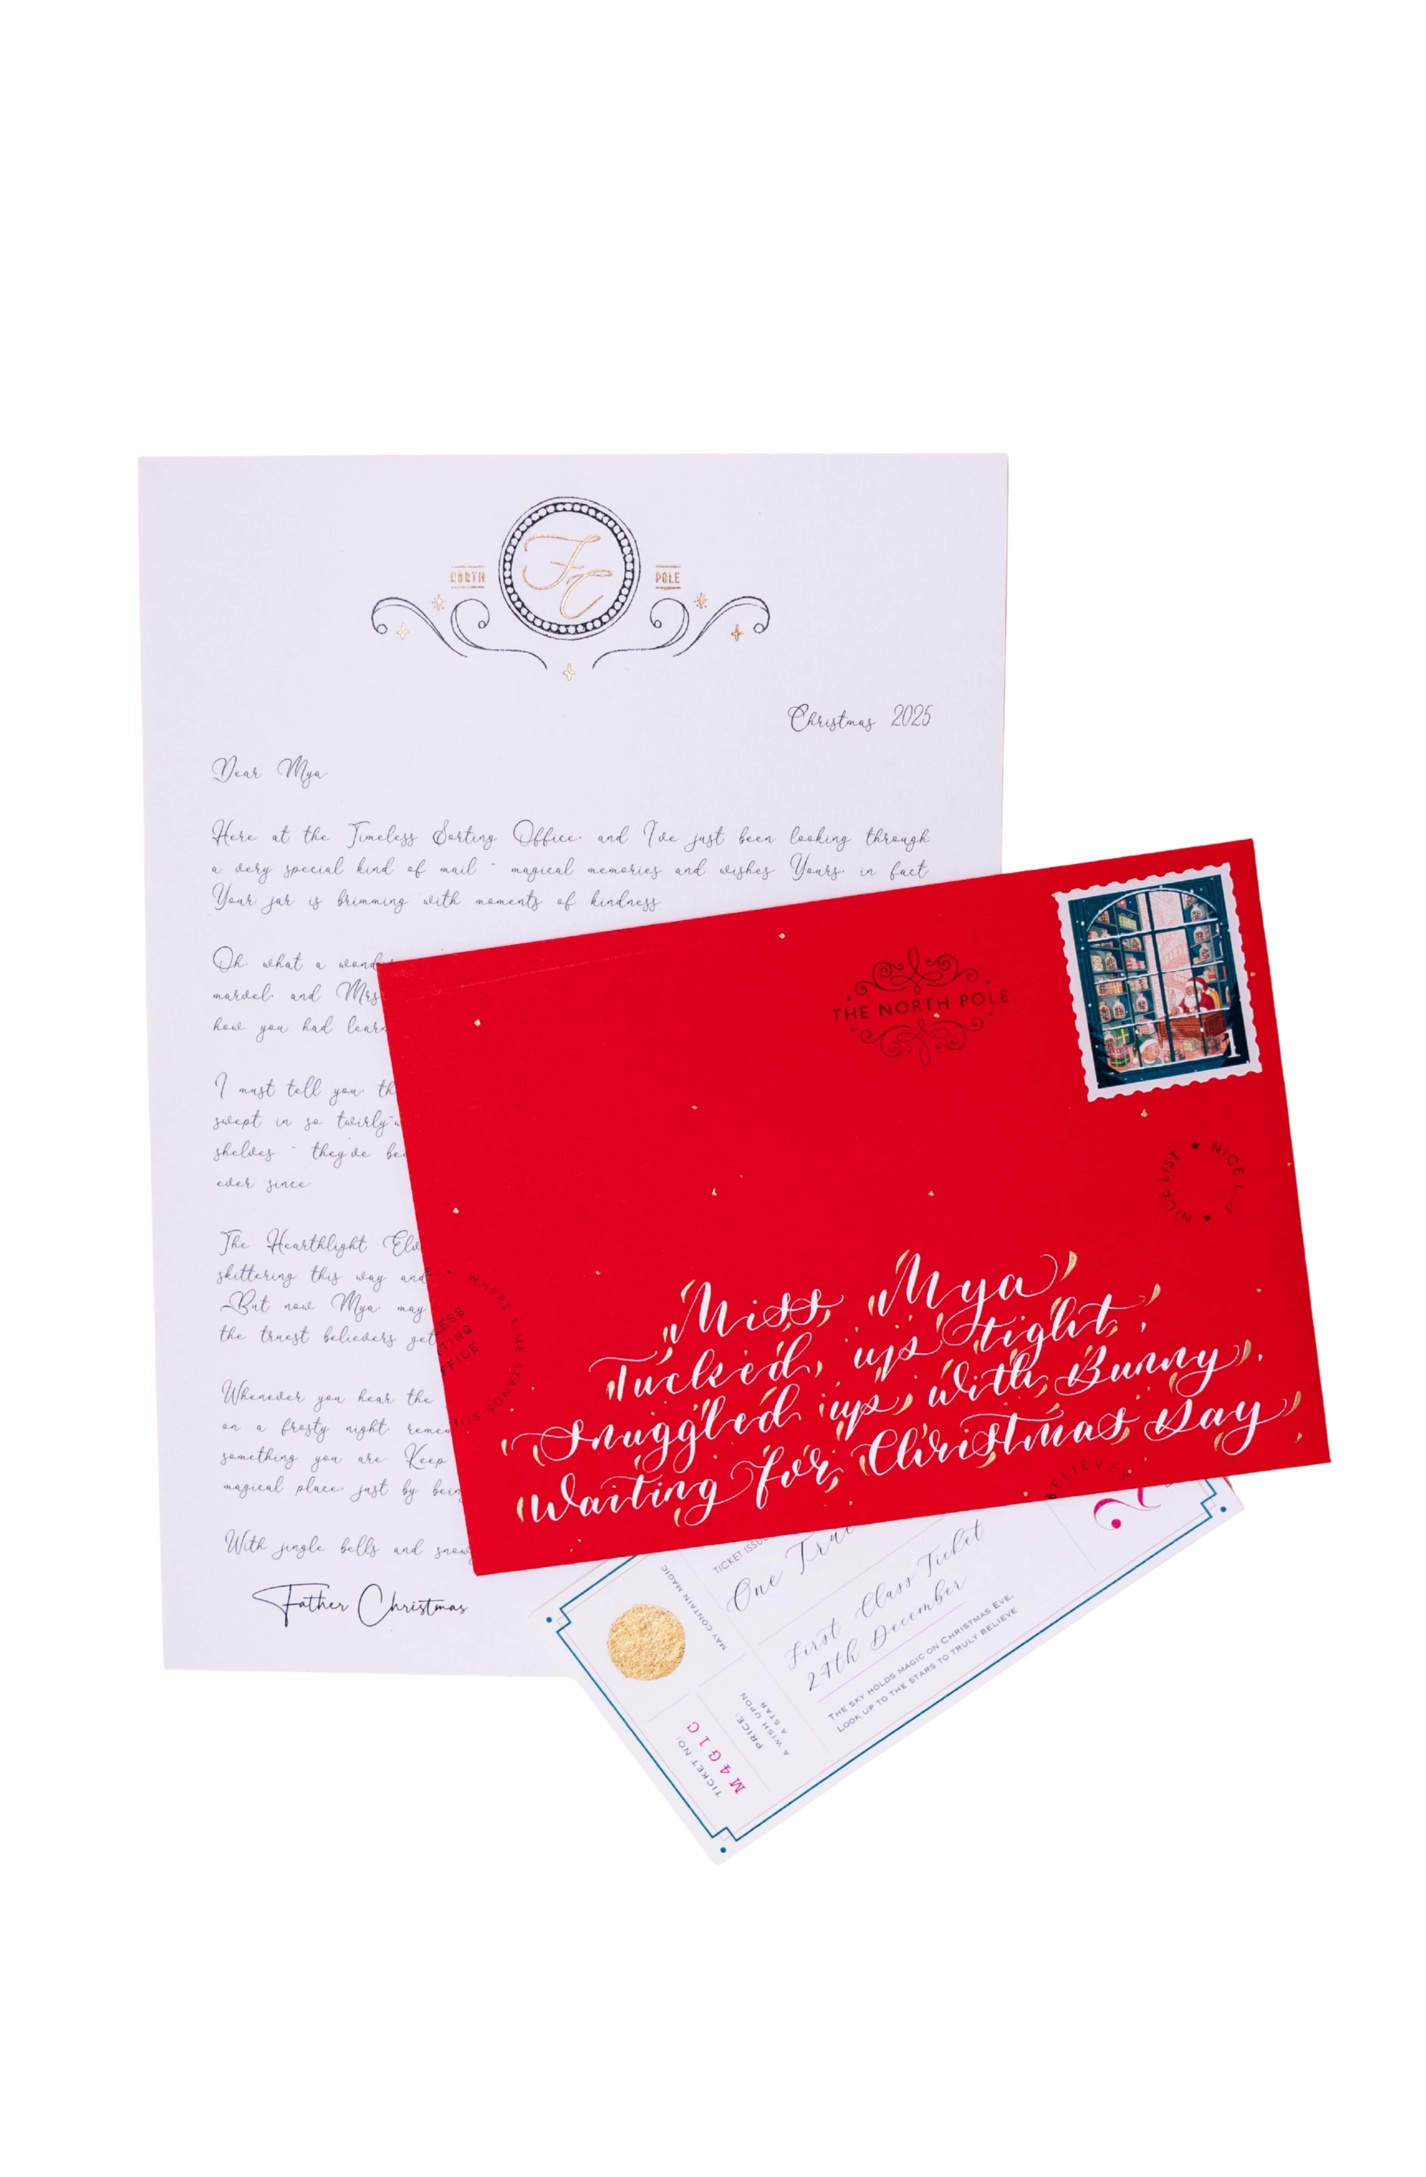 NORTH
FC
POLE
Christmas 2025
Dear Mya,
Here at the Timeless Sorting Office, and I've just been looking through
a very special kind of mail - magical memories and wishes. Yours, in fact.
Your jar is brimming with moments of kindness
Oh, what a
marvel, and Mrs
how you had
I must tell you,
swept in so
shelves - they've
ever since
The Hearthlight
skittering this way and
But now Mya, may
the truest believers get
Whenever you hear the
on a frosty night
something you are. Keep
magical place, just by
With jingle bells and
Father Christmas
THE NORTH POLE
1
NICE LIST ★ NICE LIST ★
WHERE TIME STANDS STILL
Miss Mya
Tucked up tight,
Snuggled up with Bunny,
Waiting for Christmas Day
BELIEVER
TICKET
One True
First Class Ticket
24th December
THE SKY HOLDS MAGIC ON CHRISTMAS EVE,
LOOK UP TO THE STARS TO TRULY BELIEVE
MAY CONTAIN MAGIC
PRICE:
A WISH UPON
A STAR
TICKET NO:
M4G1C